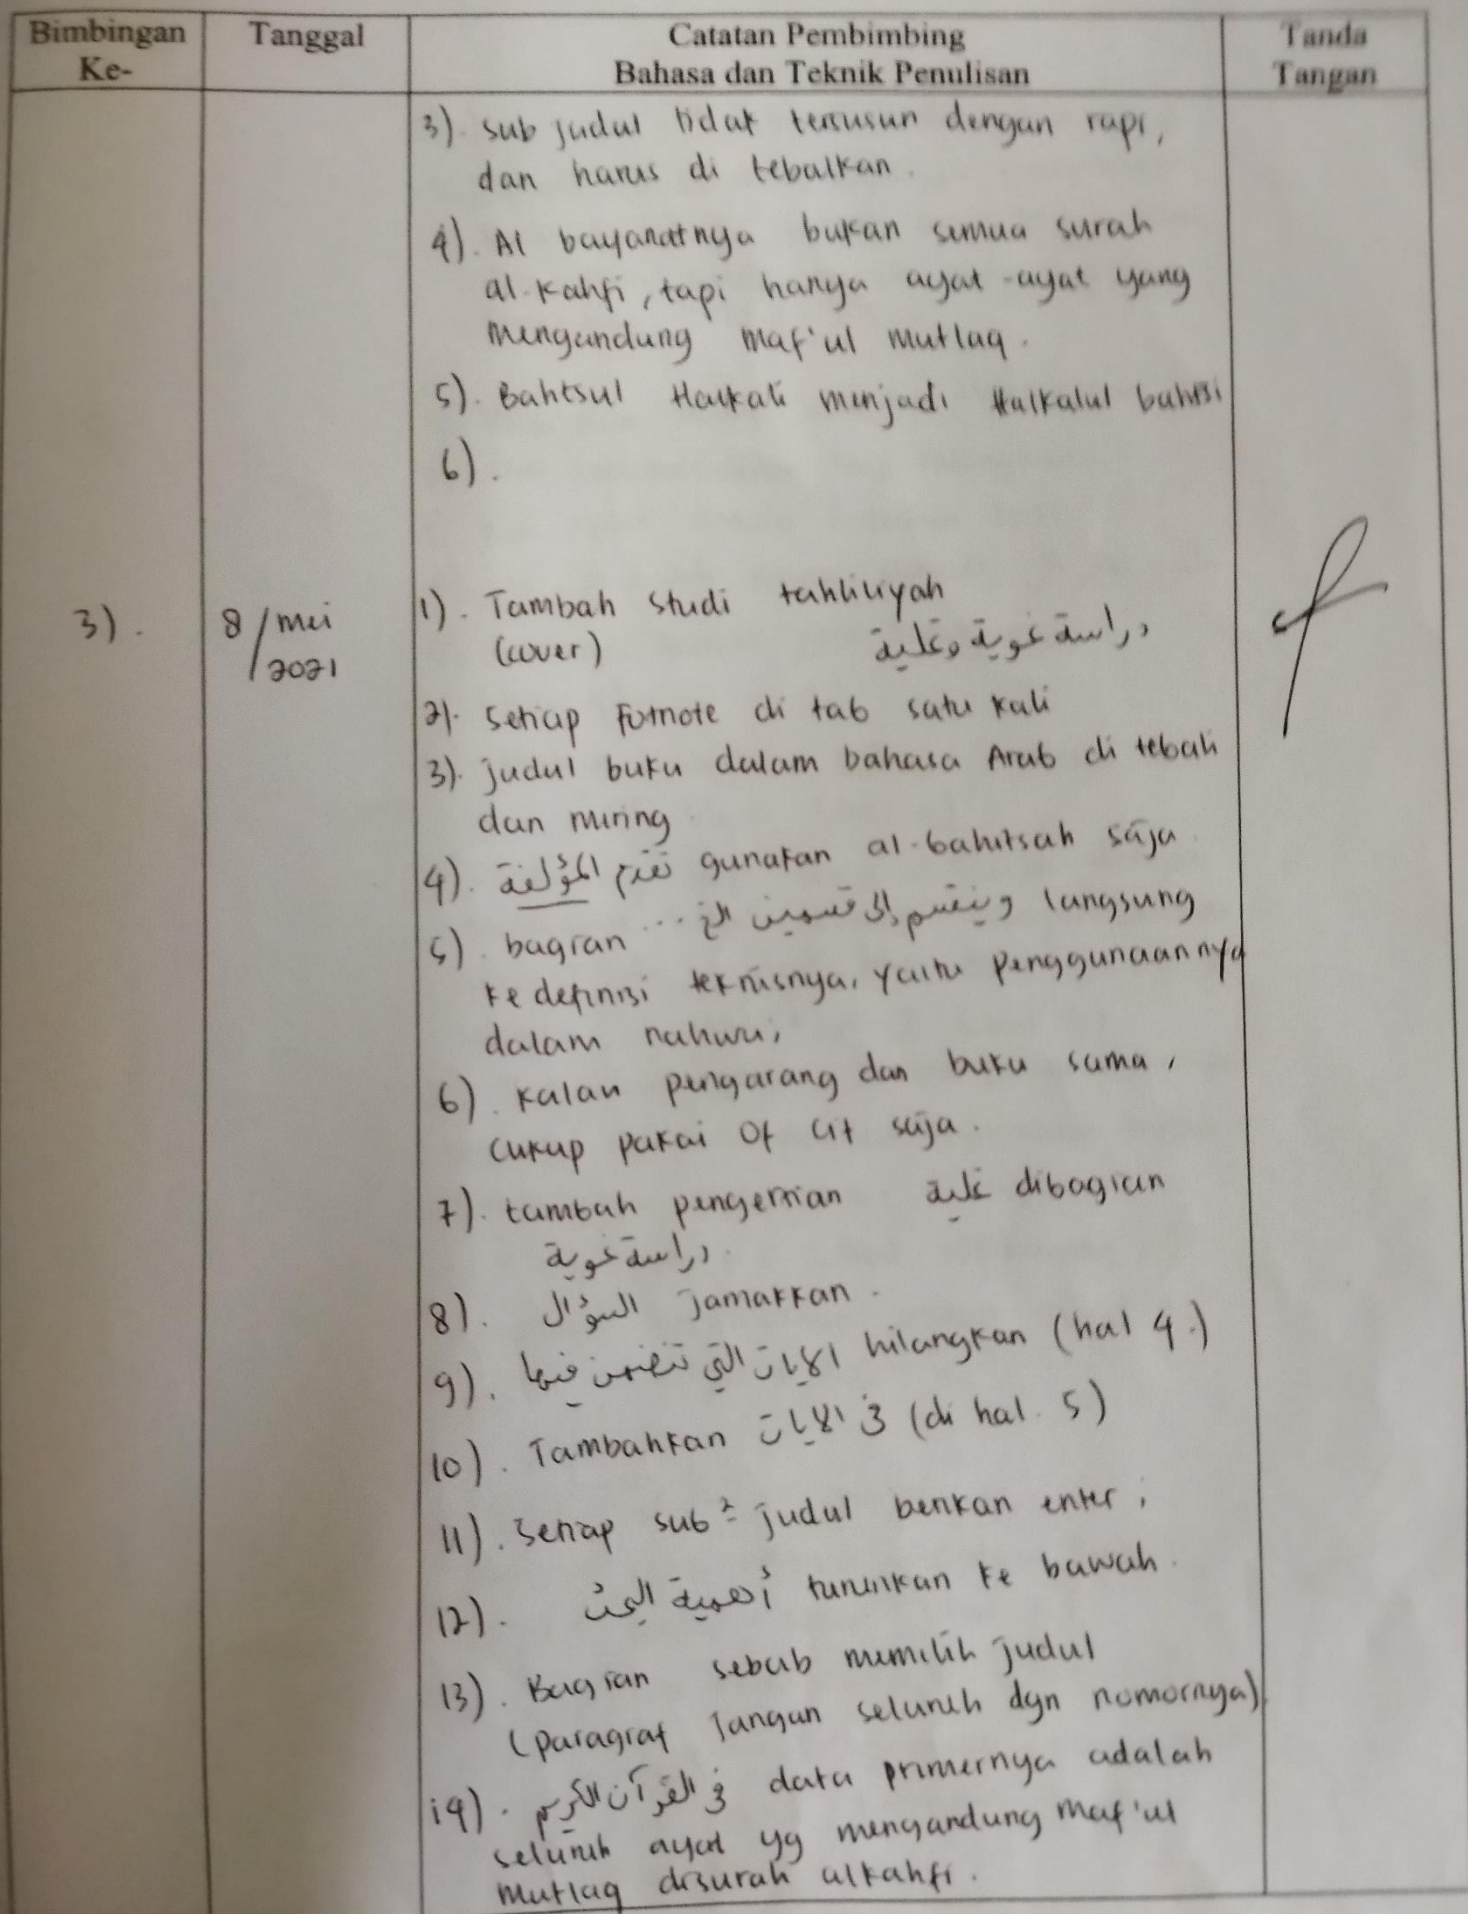 Bimbingan Ke-
Tanggal
Catatan Pembimbing
Bahasa dan Teknik Penulisan
Tanda Tangan
3). sub judul tidak tersusun dengan rapi,
dan harus di tebalkan.
4). Al bayanatnya bukan semua surah
al-kahfi, tapi hanya ayat-ayat yang
mengandung maf'ul mutlaq.
5). Bahtsul Haikali menjadi Haikalul bahtsi
6).
3).
8/mei
2021
1). Tambah studi tahliliyah
(cover) دراسة نحوية و
2). Setiap Futnote di tab satu kali
3). judul buku dalam bahasa Arab di tebali
dan miring
4). تقدم المؤلفة gunakan al-bahitsah saja
5). bagian ... وينقسم إلى قسمين الخ langsung
ke definisi teknisnya, yaitu penggunaannya
dalam nahwu,
6). Kalau pengarang dan buku sama,
cukup pakai Of cit saja.
7). tambah pengertian dibagian
دراسة نحوية.
8). السؤال jamakkan.
9). الايات التي تتضمن فيها hilangkan (hal 4.)
10). Tambahkan في الايات (di hal. 5)
11). Setiap sub² judul berikan enter,
12). أهمية البحث turunkan ke bawah.
13). Bagian sebab memilih judul
(paragraf jangan seluruh dgn nomornya)
14). في القرآن الكريم data primernya adalah
seluruh ayat yg mengandung maf'ul
mutlaq disurah alkahfi.